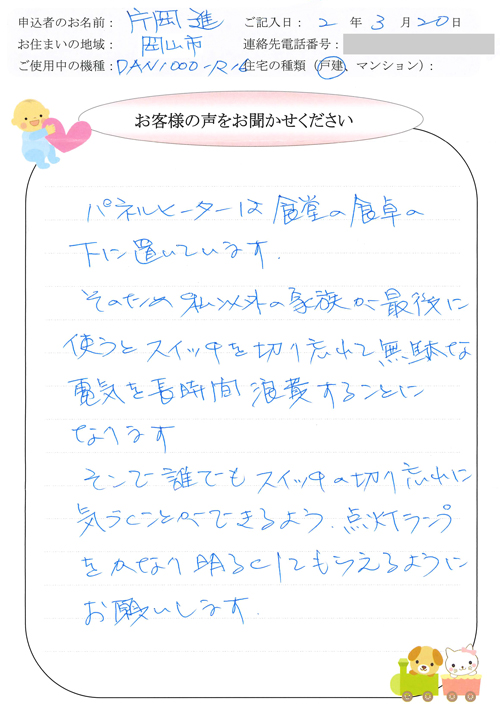 申込者のお名前：片岡進 ご記入日：2年3月20日
お住まいの地域：岡山市 連絡先電話番号：
ご使用中の機種：DAN1000-R16 住宅の種類（戸建、マンション）：
お客様の声をお聞かせください
パネルヒーターは食堂の食卓の
下に置いています.
そのため私以外の家族が最後に
使うとスイッチを切り忘れて無駄な
電気を長時間浪費することに
なります
そこで誰でもスイッチの切り忘れに
気づくことができるよう、点灯ランプ
をかなり明るくしてもらえるように
お願いします.